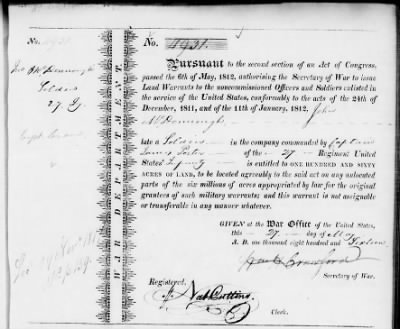 No.
No. 1931.
Pursuant to the second section of an Act of Congress,
passed the 6th of May, 1812, authorising the Secretary of War to issue
Land Warrants to the noncommissioned Officers and Soldiers enlisted in
the service of the United, States, conformably to the acts of the 24th of
December, 1811, and of the 11th of January, 1812. John
late a Soldier in the company commanded by Captain
of the 27 Regiment United
States' Infantry is entitled to ONE HUNDRED AND SIXTY
ACRES OF LAND, to be located agreeably to the said act on any unlocated
parts of the six millions of acres appropriated by law for the original
grantees of such military warrants; and this warrant is not assignable
or transferable in any manner whatever.
GIVEN at the War Office of the United States,
this 27 day of May
A. D. one thousand eight hundred and Sixteen
Wm H Crawford
Secretary of War.
Registered,
Nat Cutting.
Clerk.
WAR DEPARTMENT.
Soldier
27